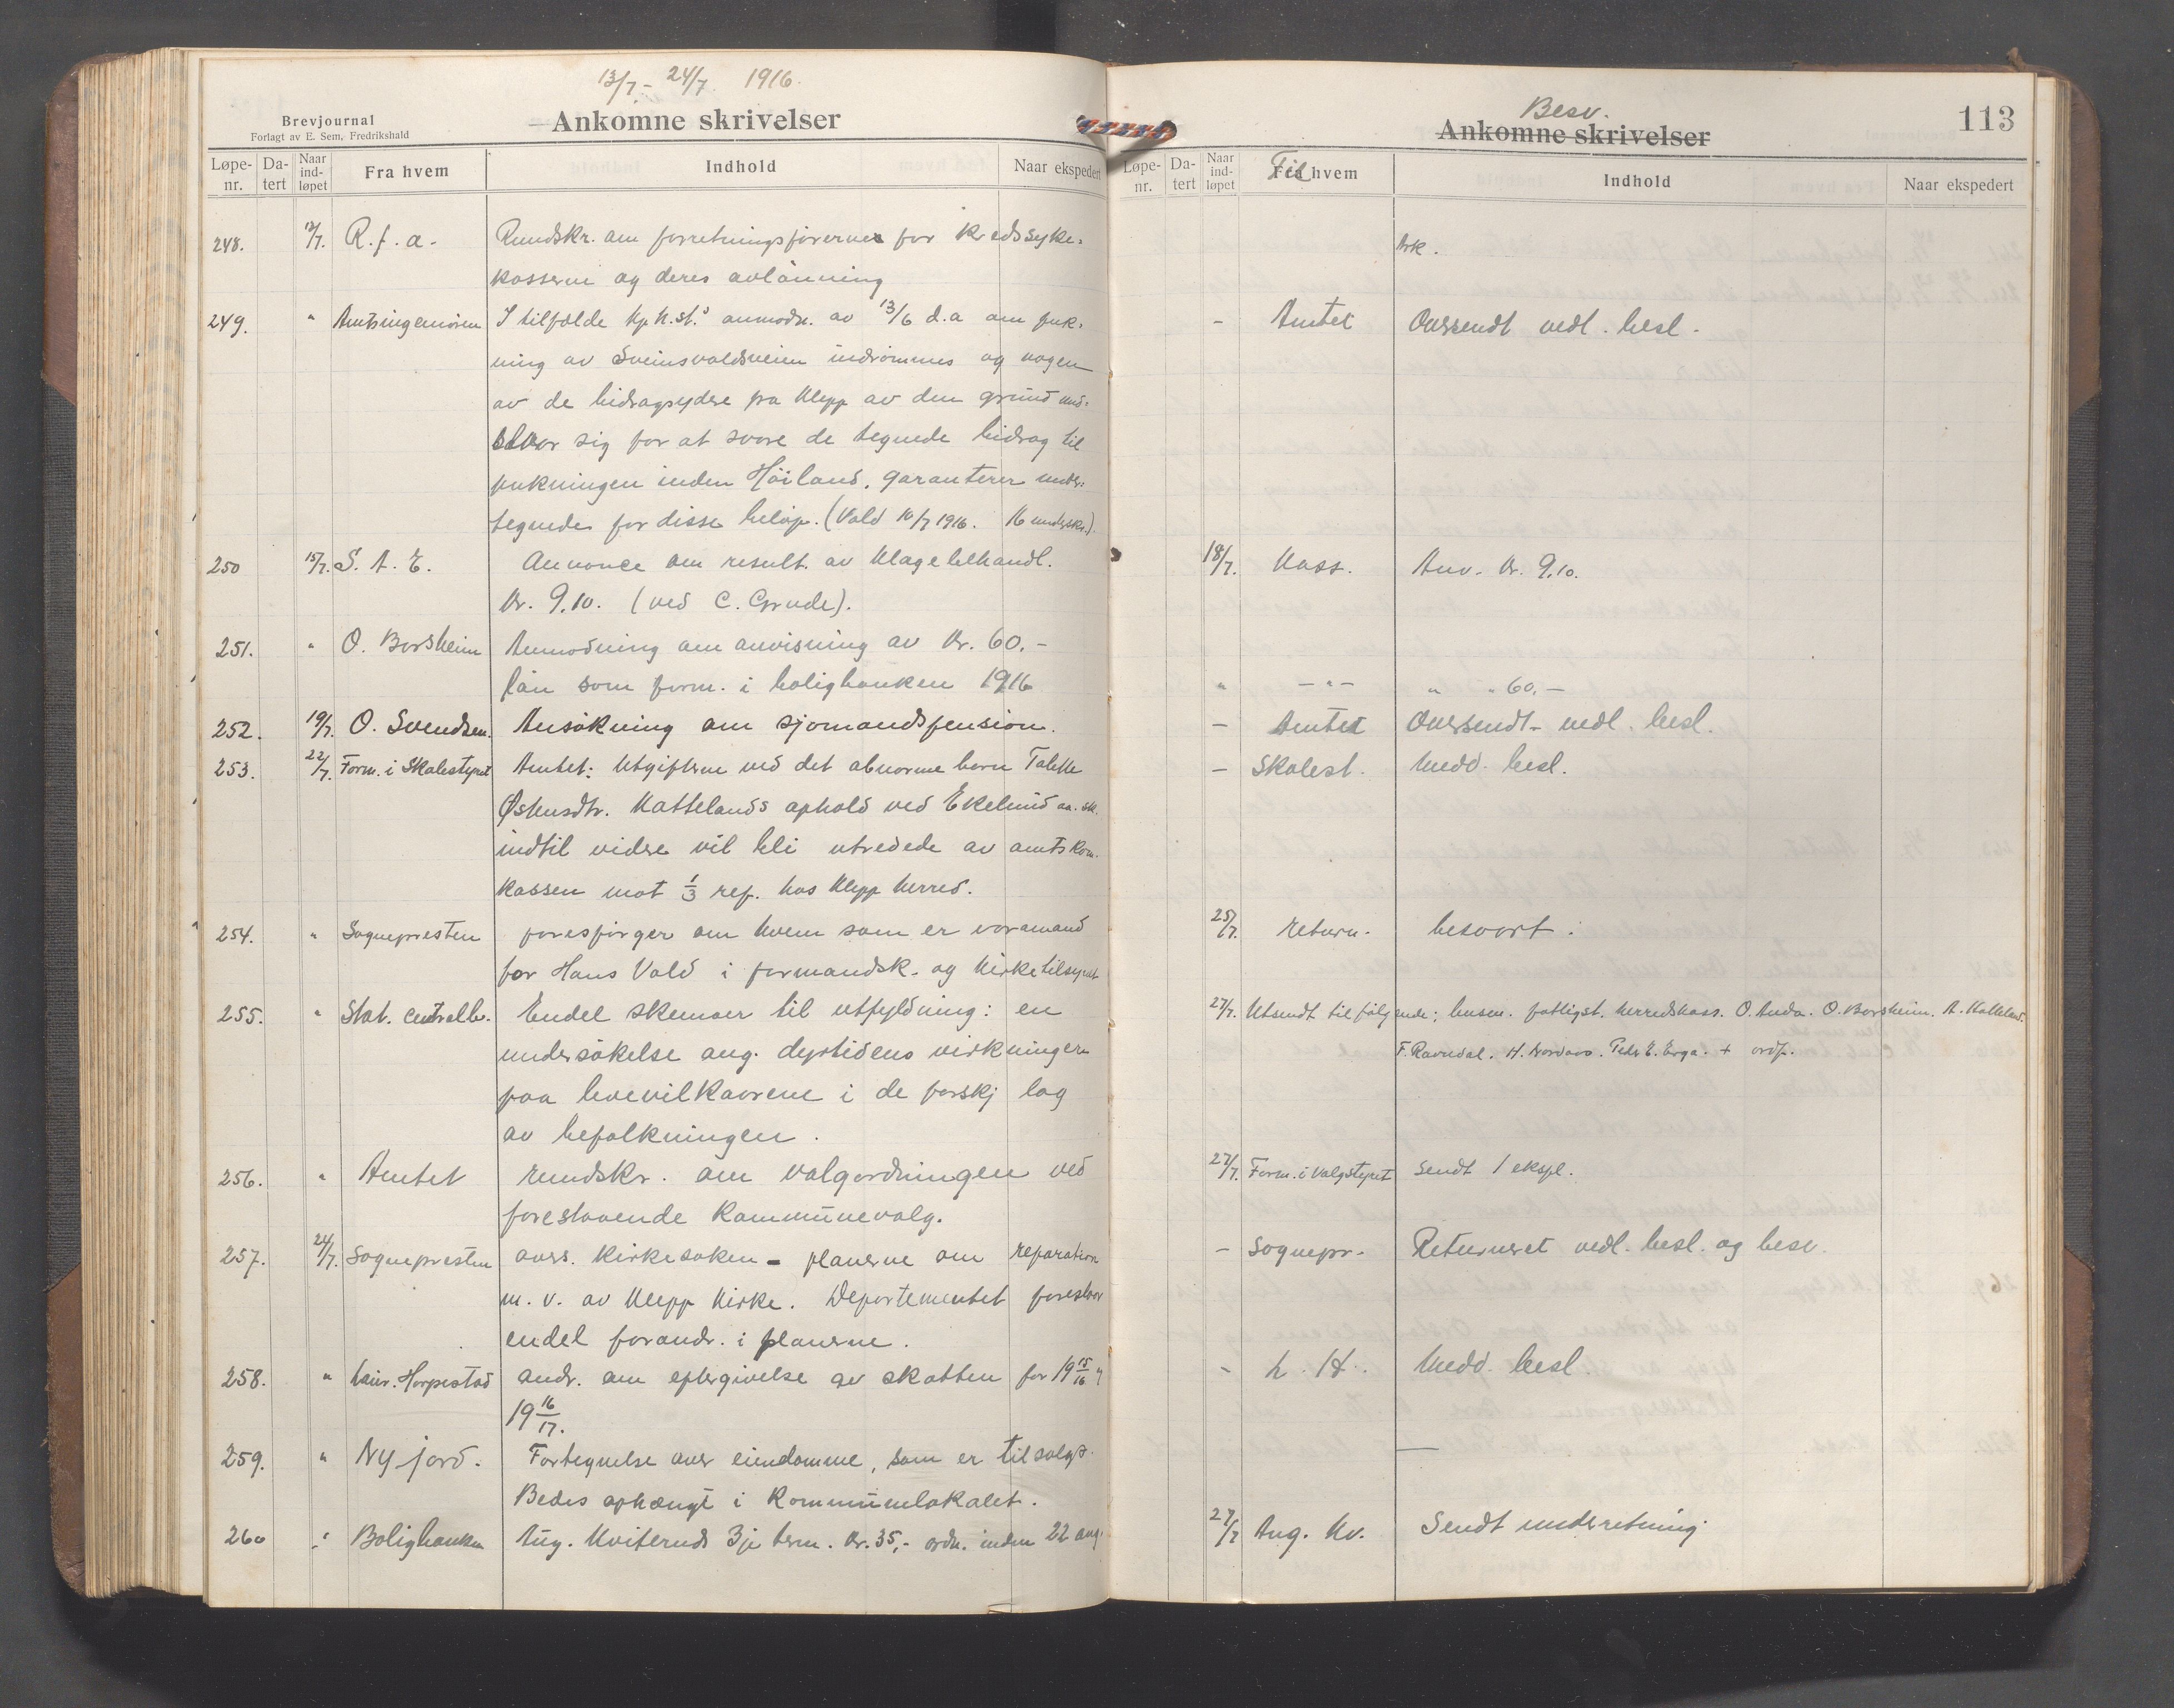 13/7 - 24/7 1916.
Brevjournal
Forlagt av E. Sem, Fredrikshald
Ankomne skrivelser
Løpe-nr. Da-tert Naar ind-løpet Fra hvem Indhold Naar ekspedert
248. 13/7. R.f.a. Rundskr. om forretningsförerne for Kredssyke-
kasserne og deres avlönning
249. " Amtsingeniören I tilfælde Kp. h.st.s anmodn. av 13/6 d.a om puk-
ning av Sveinsvoldsveien indrömmes og nogen
av de bidragsydere fra Klepp av den grund und-
slaar sig for at svare de tegnede bidrag til
pukningen inden Höiland, garanterer under-
tegnede for disse belöp. (Vold 10/7 1916. 16 underskr.).
250 15/7. S. A. E. Annonce om result. av Klagebehandl.
Kr. 9.10. (ved C. Grude).
251. " O. Borsheim Anmodning om anvisning av Kr. 60.-
lön som form. i boligbanken 1916
252. 19/7. O. Svendsen. Ansökning om sjømandspension.
253. 22/7. Form. i Skolestyret Amtet: Utgifterne ved det abnorme barn Talette
Østensdtr. Kattelands ophold ved Ekelund aa. sk.
indtil videre vil bli utredede av amtskom.
kassen mot 1/3 ref. hos Klepp herred.
254. " Sognepresten forespörger om hvem som er varamand
for Hans Vold i formandsk. og Kirketilsynet
255. " Stat. Centralb. Endel skemaer til utfyldning: en
undersökelse ang. dyrtidens virkninger
paa levevilkaarene i de forskj lag
av befolkningen.
256. " Amtet rundskr. om valgordningen ved
forestaaende Kommunevalg.
257. 24/7. Sognepresten overs. Kirkesaken - planerne om reparation
m. v. av Klepp Kirke. Departementet foreslaar
endel forandr. i planerne.
258. " Laur. Horpestad andr. om eftergivelse av skatten for 19 15/16 "
19 16/17.
259. " Ny jord. Fortegnelse over eiendomme, som er tilsalgs.
Bedes ophængt i Kommunelokalet.
260 " Boligbanken Aug. Kviteruds 3je term. Kr. 35,- ordn. inden 22 aug.
113
Besv.
Ankomne skrivelser
Løpe-nr. Da-tert Naar ind-løpet Til Fra hvem Indhold Naar ekspedert
Ark.
- Amtet Oversendt vedl. besl.
18/7. Kass. Anv. Kr. 9.10.
" -"- " " 60.-
- Amtet Oversendt vedl. besl.
- Skolest. Medd. besl.
25/7. Return. besvart:
27/7. Utsendt til følgende: Lensm. fattigst. herredskass. O. Anda. O. Borsheim. A. Katteland.
F. Ravndal. H. Nordaas. Peder E. Erga. + ordf.
27/7. Form. i valgstyret Sendt 1 ekspl.
- Sognepr. Returneret vedl. besl. og besv.
- L. H. Medd. besl.
—
27/7 Aug. Kv. Sendt underretning